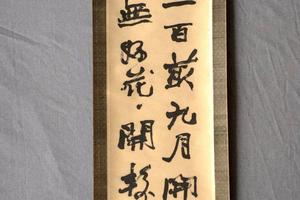 一百九月開
無好花開